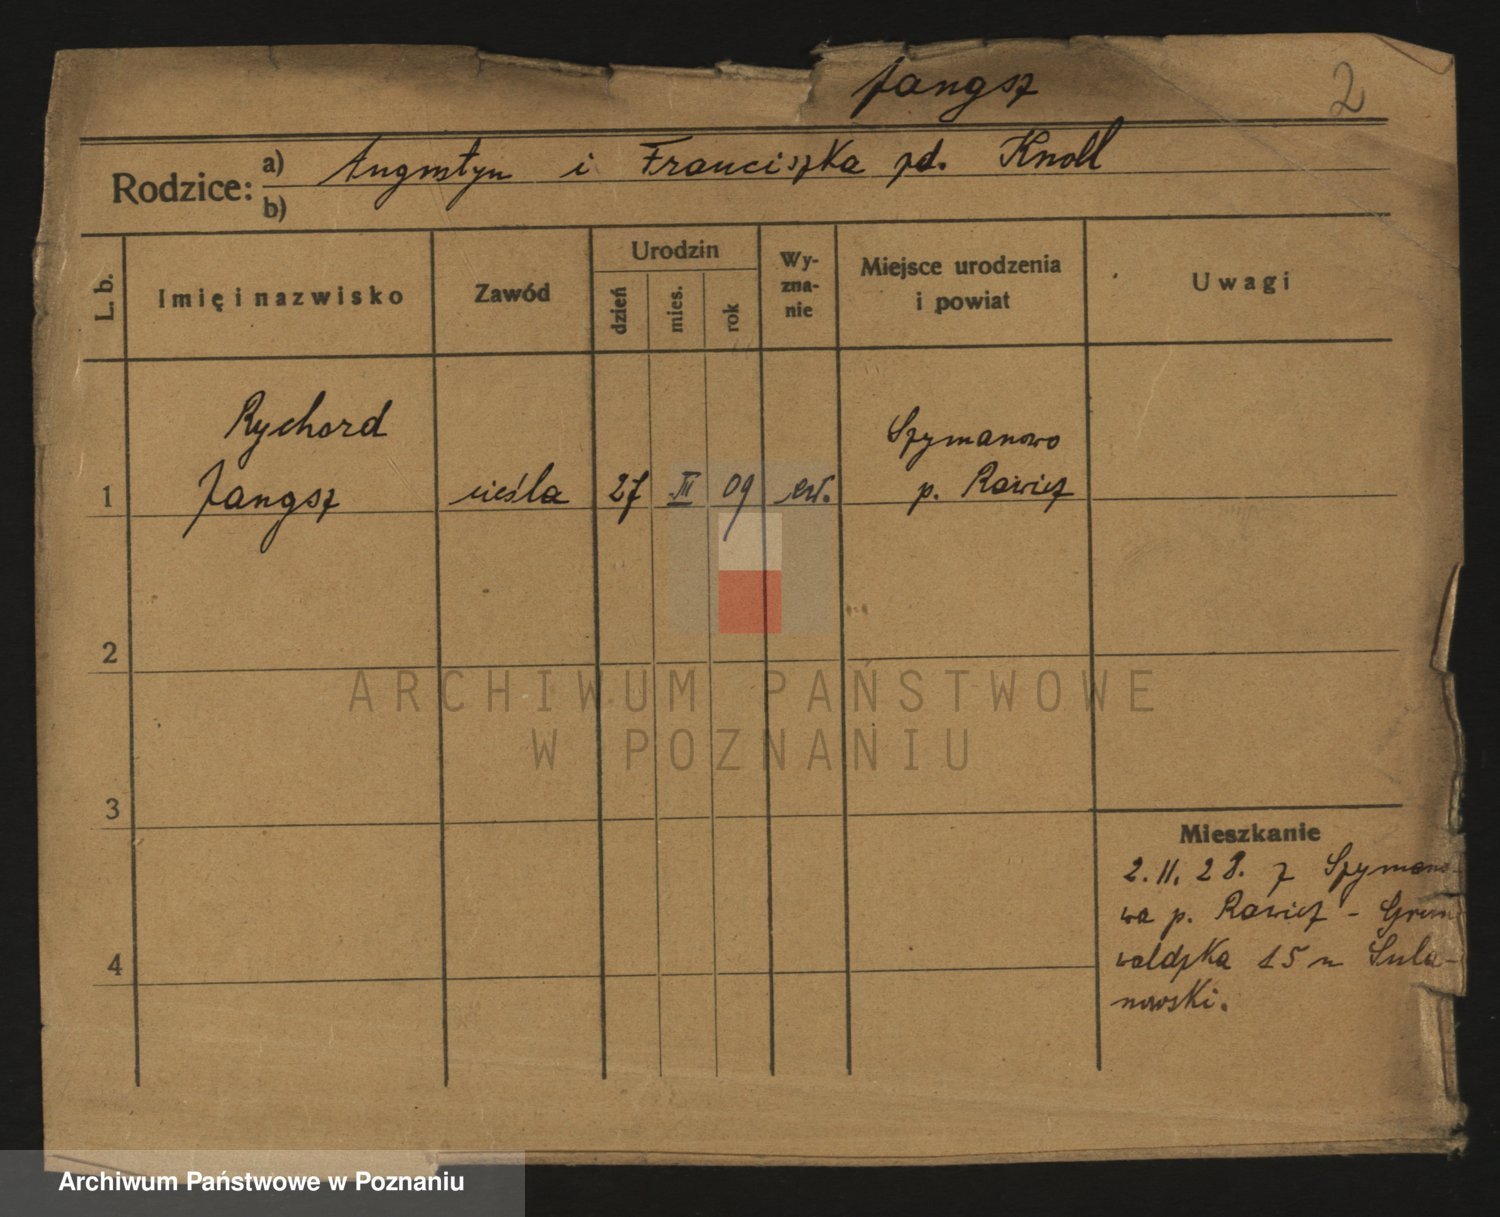 Jangsz
2
Rodzice:
a) Augustyn i Franciszka zd. Knoll
b)
L. b.
Imię i nazwisko
Zawód
Urodzin
dzień
mies.
rok
Wy-
zna-
nie
Miejsce urodzenia
i powiat
Uwagi
Rychard
Jangsz
1
cieśla
27
III
09
ew.
Szymanowo
p. Rawicz
2
3
4
Mieszkanie
2. II. 28. z Szymano-
wa p. Rawicz - Grun
waldzka 15 u Sula-
nowski.
ARCHIWUM PAŃSTWOWE
W POZNANIU
Archiwum Państwowe w Poznaniu